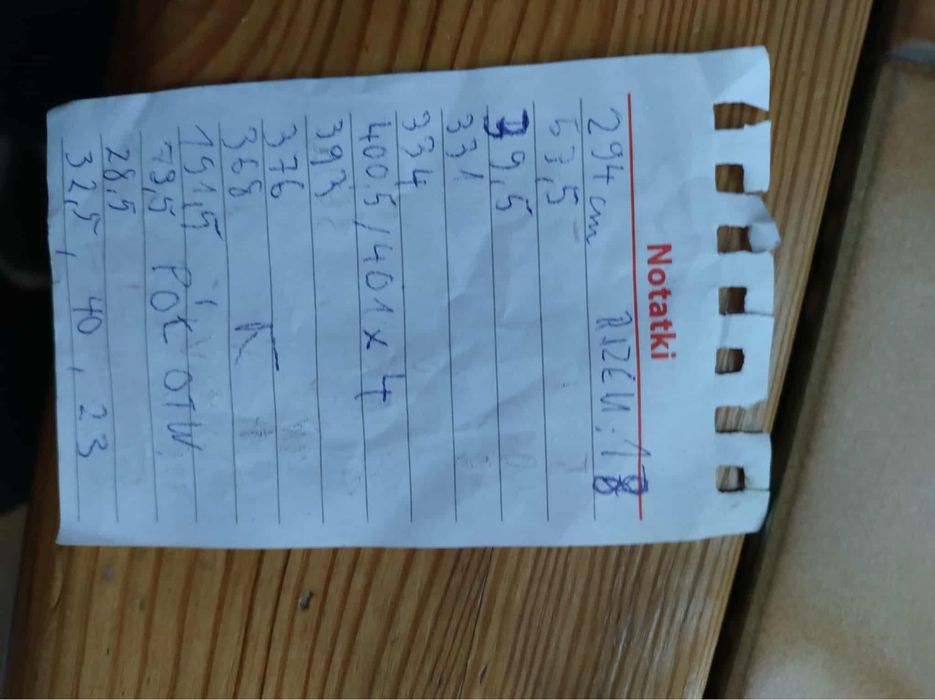 Notatki
294 cm
53,5
99,5
331
334
400.5 / 401 x 4
393
376
368 K
191,5
79,5 PÓŁ OTW.
28,5
32,5, 40, 23